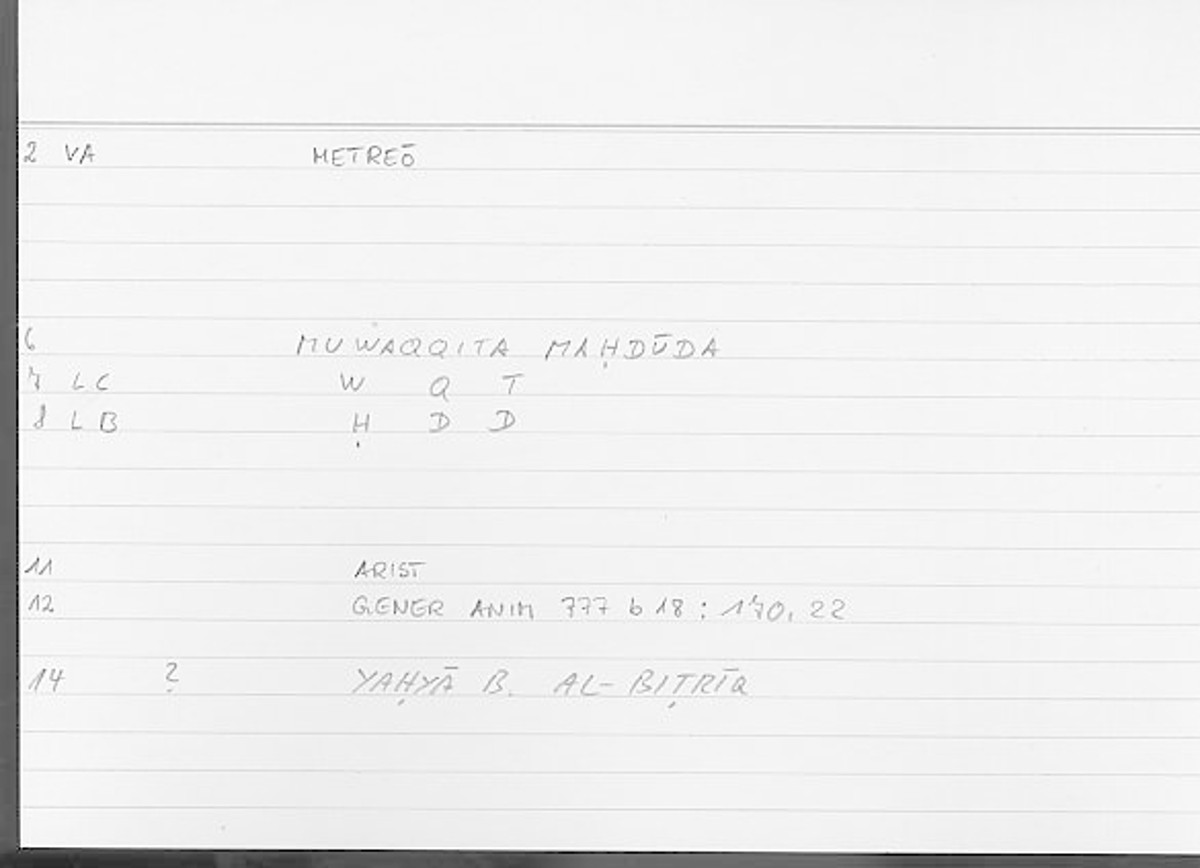 2 VA METREŌ
6 MUWAQQITA MAḤDŪDA
7 LC W Q T
8 LB Ḥ D D
11 ARIST
12 GENER ANIM 777 b 18 : 170, 22
14 ? YAḤYĀ B. AL-BIṬRĪQ